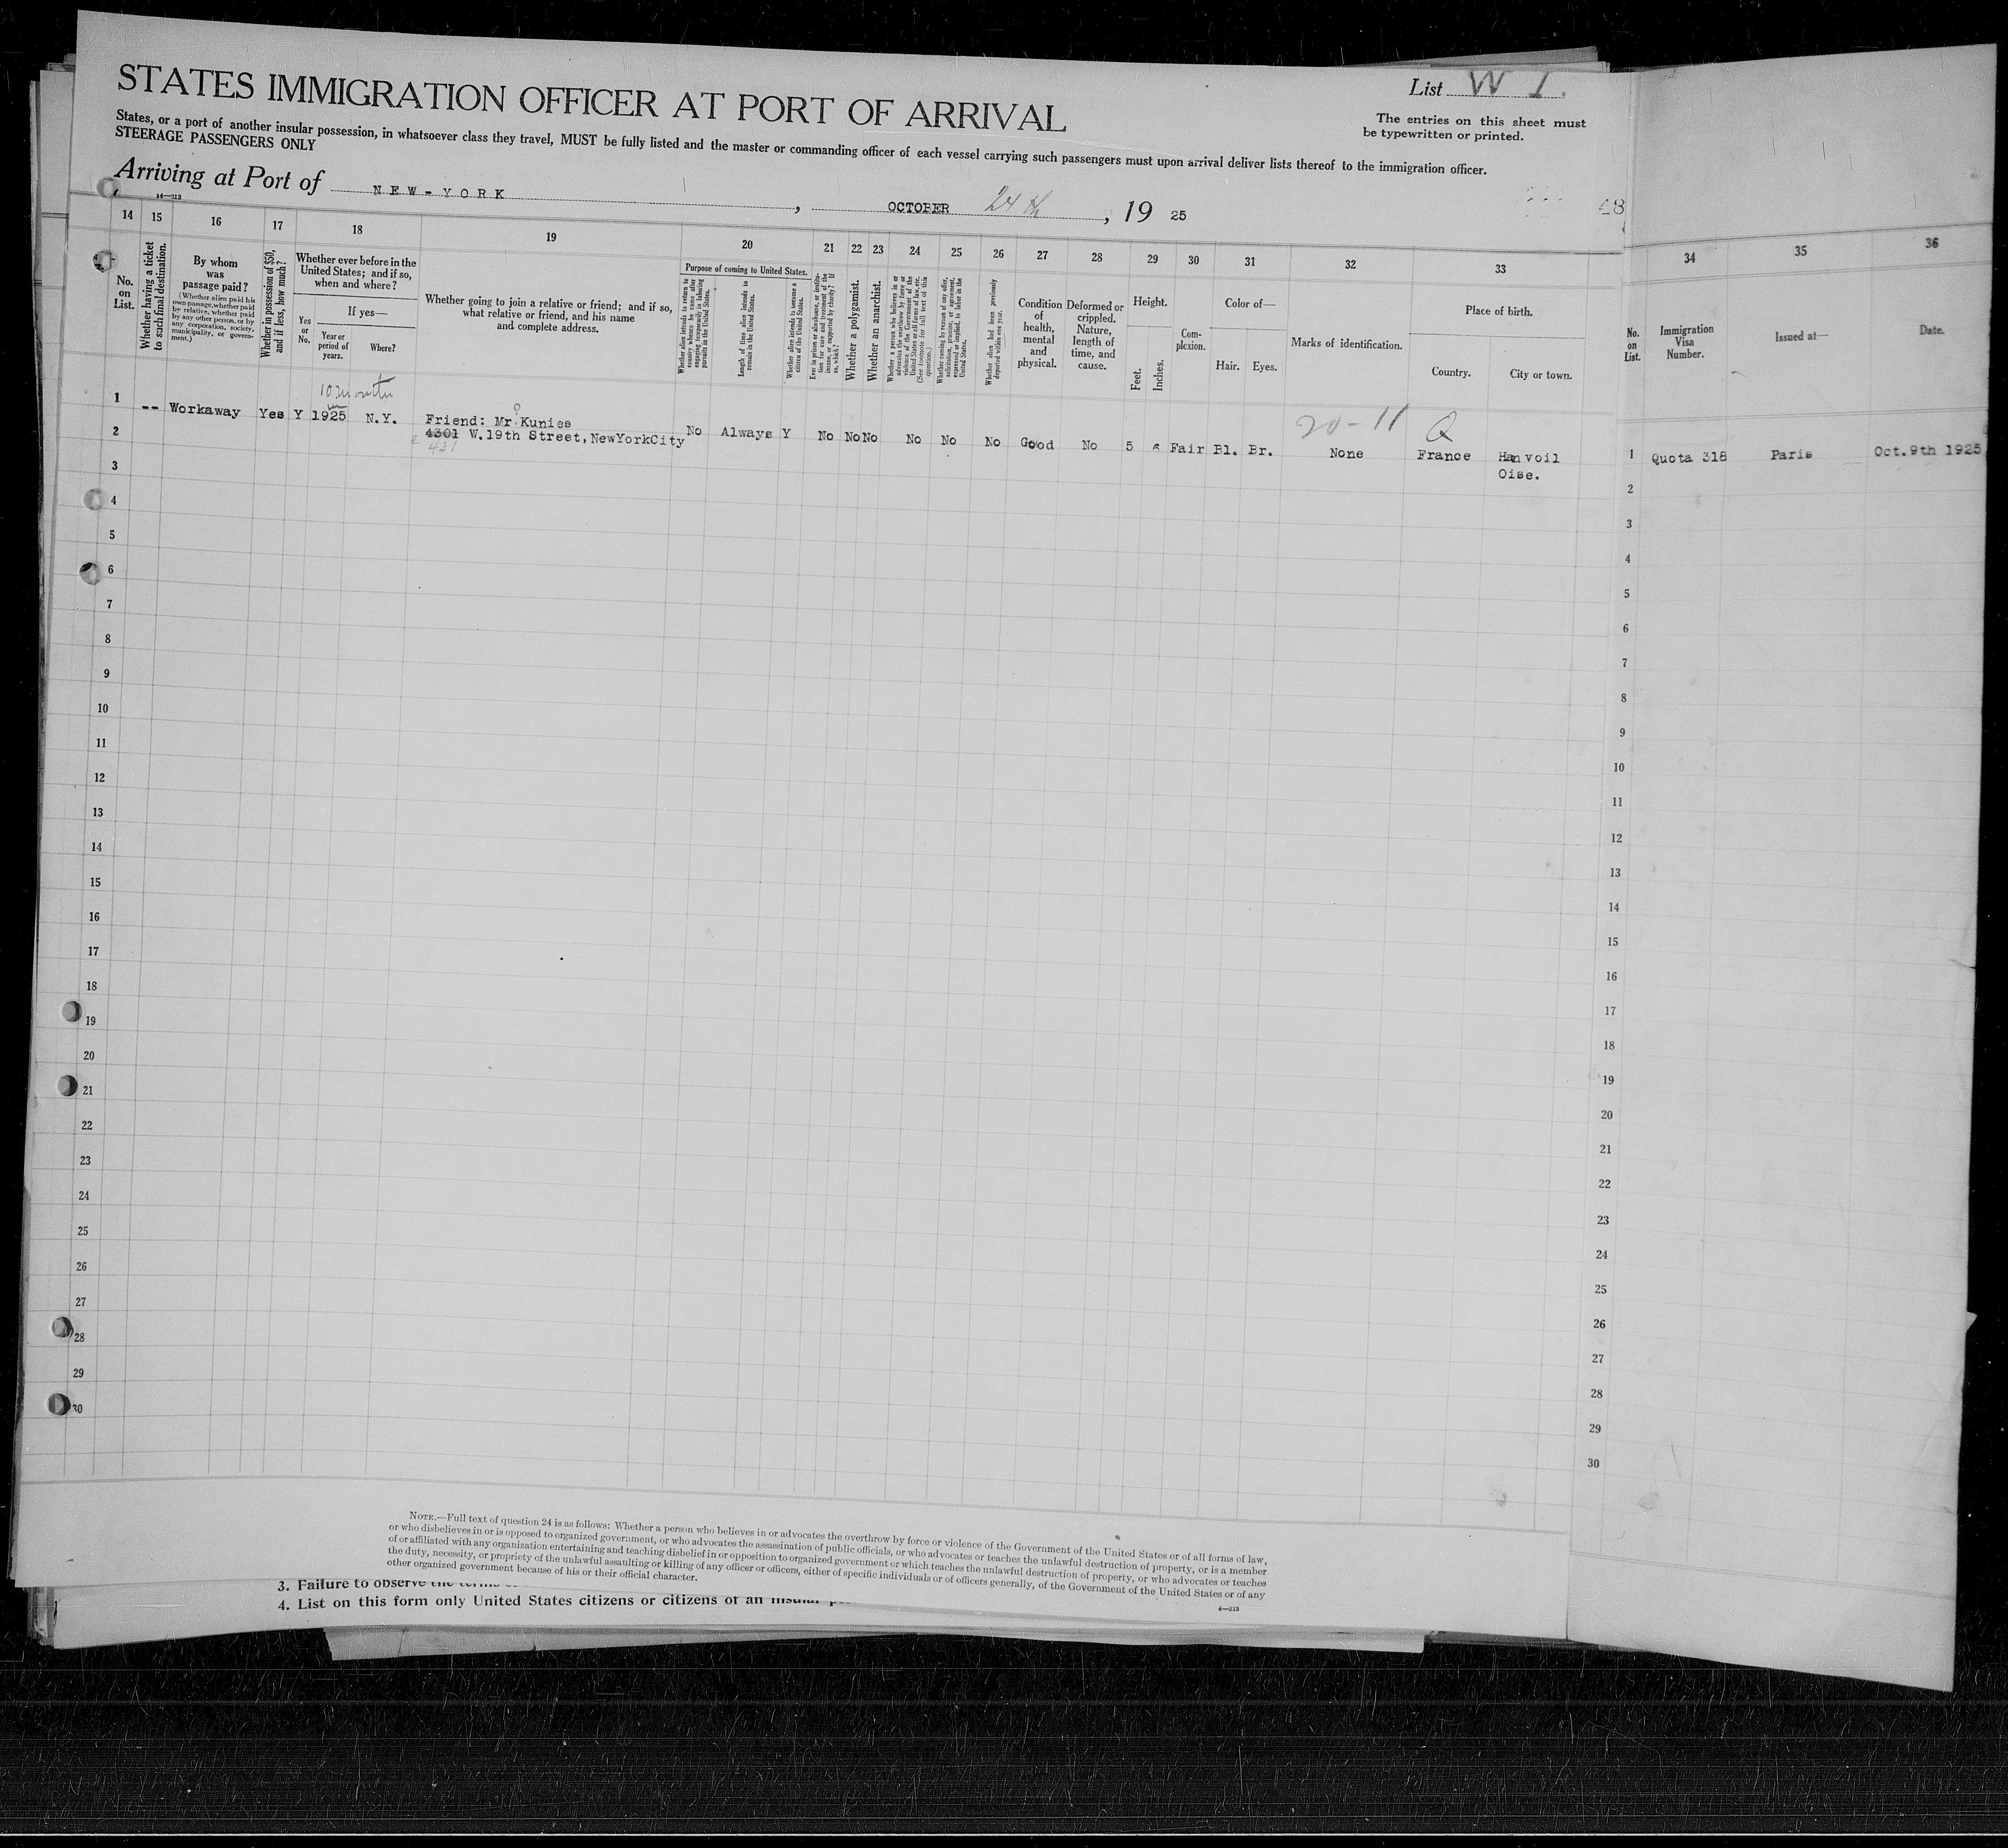 STATES IMMIGRATION OFFICER AT PORT OF ARRIVAL
List W 1.
The entries on this sheet must
be typewritten or printed.
States, or a port of another insular possession, in whatsoever class they travel, MUST be fully listed and the master or commanding officer of each vessel carrying such passengers must upon arrival deliver lists thereof to the immigration officer.
STEERAGE PASSENGERS ONLY
Arriving at Port of NEW-YORK, OCTOBER 24th, 19 25
14 15 16 17 18 19 20 21 22 23 24 25 26 27 28 29 30 31 32 33 34 35 36
No.
on
List.
Whether having a ticket
to such final destination.
By whom
was
passage paid?
(Whether alien paid his
own passage, whether paid
by relative, whether paid
by any other person, or by
any corporation, society,
municipality, or govern-
ment.)
Whether in possession of $50,
and if less, how much?
Whether ever before in the
United States; and if so,
when and where?
If yes—
Yes
or
No.
Year or
period of
years.
Where?
Whether going to join a relative or friend; and if so,
what relative or friend, and his name
and complete address.
Purpose of coming to United States.
Whether alien intends to return to
country whence he came after
engaging temporarily in laboring
pursuits in the United States.
Length of time alien intends to
remain in the United States.
Whether alien intends to become a
citizen of the United States.
Ever in prison or almshouse, or institu-
tion for care and treatment of the
insane, or supported by charity? If
so, which?
Whether a polygamist.
Whether an anarchist.
Whether a person who believes in or
advocates the overthrow by force or
violence of the Government of the
United States or all forms of law, etc.
(See footnote for full text of this
question.)
Whether coming by reason of any offer,
solicitation, promise, or agreement,
expressed or implied, to labor in the
United States.
Whether alien had been previously
deported within one year.
Condition
of
health,
mental
and
physical.
Deformed or
crippled.
Nature,
length of
time, and
cause.
Height.
Feet.
Inches.
Com-
plexion.
Color of—
Hair.
Eyes.
Marks of identification.
Place of birth.
Country.
City or town.
No.
on
List.
Immigration
Visa
Number.
Issued at—
Date.
10 months
20-11 Q
1 -- Workaway Yes Y 1925 N.Y. Friend: Mr Kunies
4301 W.19th Street, NewYorkCity No Always Y No No No No No No Good No 5 6 Fair Bl. Br. None France Hanvoil
Oise.
431
1 Quota 318 Paris Oct.9th 1925
2 2
3 3
4 4
5 5
6 6
7 7
8 8
9 9
10 10
11 11
12 12
13 13
14 14
15 15
16 16
17 17
18 18
19 19
20 20
21 21
22 22
23 23
24 24
25 25
26 26
27 27
28 28
29 29
30 30
NOTE.—Full text of question 24 is as follows: Whether a person who believes in or advocates the overthrow by force or violence of the Government of the United States or of all forms of law,
or who disbelieves in or is opposed to organized government, or who advocates the assassination of public officials, or who advocates or teaches the unlawful destruction of property, or is a member
of or affiliated with any organization entertaining and teaching disbelief in or opposition to organized government or which teaches the unlawful destruction of property, or who advocates or teaches
the duty, necessity, or propriety of the unlawful assaulting or killing of any officer or officers, either of specific individuals or of officers generally, of the Government of the United States or of any
other organized government because of his or their official character.
3. Failure to observe the terms
4. List on this form only United States citizens or citizens of an insular